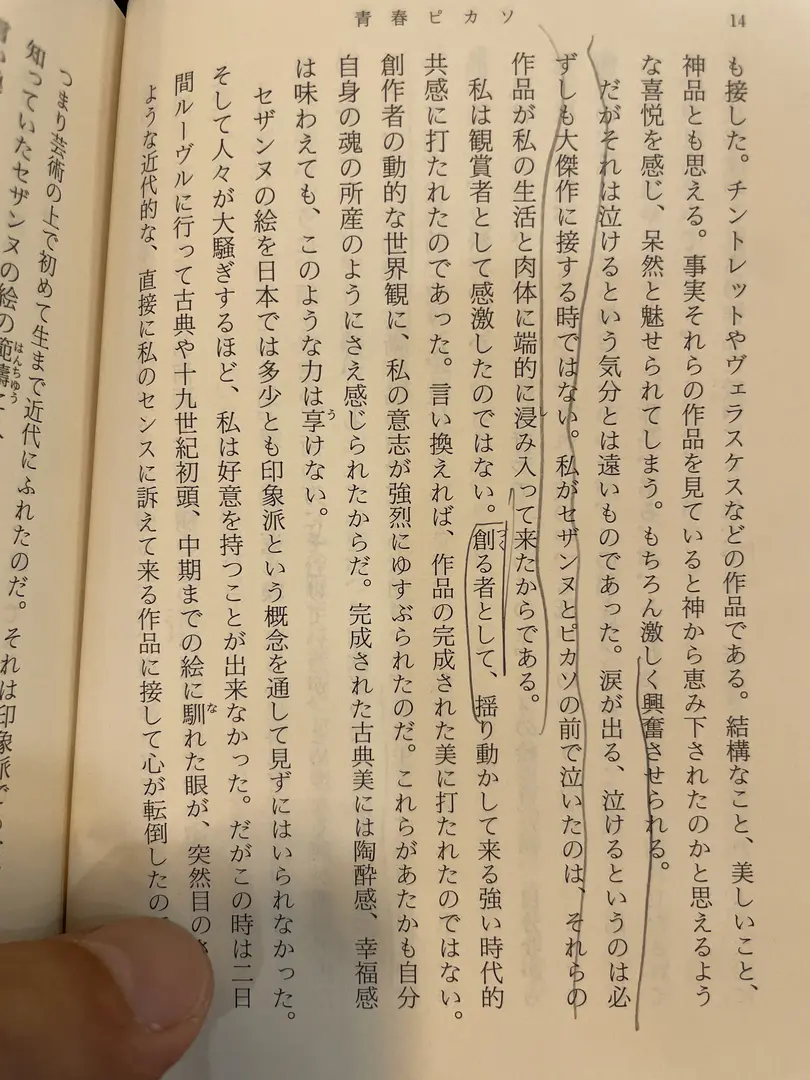 青春ピカソ
14
も接した。チントレットやヴェラスケスなどの作品である。結構なこと、美しいこと、
神品とも思える。事実それらの作品を見ていると神から恵み下されたのかと思えるよう
な喜悦を感じ、呆然と魅せられてしまう。もちろん激しく興奮させられる。
だがそれは泣けるという気分とは遠いものであった。涙が出る、泣けるというのは必
ずしも大傑作に接する時ではない。私がセザンヌとピカソの前で泣いたのは、それらの
作品が私の生活と肉体に端的に浸み入って来たからである。
私は観賞者として感激したのではない。創る者として、揺り動かして来る強い時代的
共感に打たれたのであった。言い換えれば、作品の完成された美に打たれたのではない。
創作者の動的な世界観に、私の意志が強烈にゆすぶられたのだ。これらがあたかも自分
自身の魂の所産のようにさえ感じられたからだ。完成された古典美には陶酔感、幸福感
は味わえても、このような力は享けない。
セザンヌの絵を日本では多少とも印象派という概念を通して見ずにはいられなかった。
そして人々が大騒ぎするほど、私は好意を持つことが出来なかった。だがこの時は二日
間ルーヴルに行って古典や十九世紀初頭、中期までの絵に馴れた眼が、突然目の
ような近代的な、直接に私のセンスに訴えて来る作品に接して心が転倒したの
つまり芸術の上で初めて生まで近代にふれたのだ。それは印象派で
知っていたセザンヌの絵の範疇